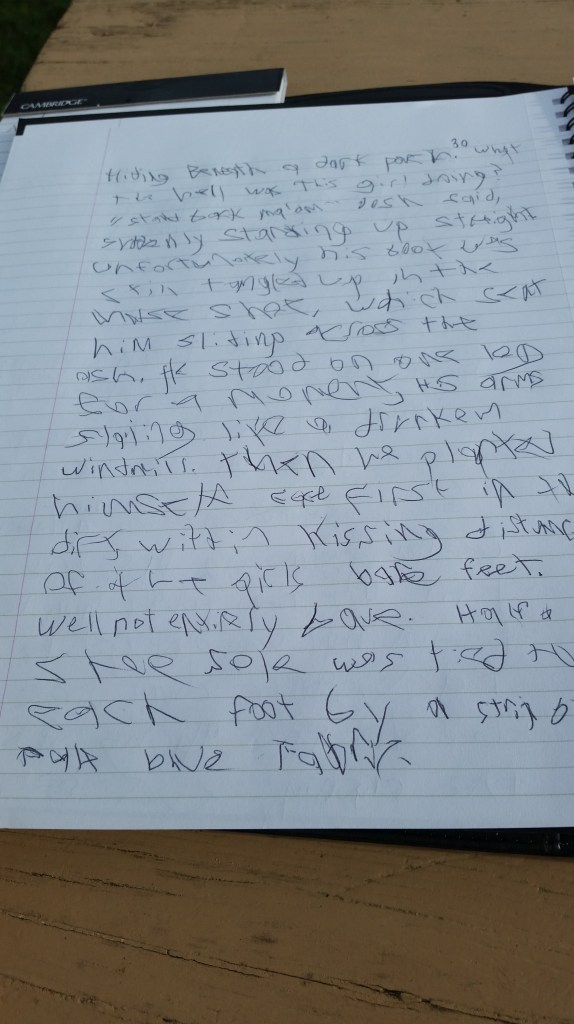 CAMBRIDGE
Hiding Beneath a dark porch? 30 what
the hell was this girl doing?
"stand back ma'am" Josh said,
standing up straight
unfortunately his boot was
still tangled up in the
which sent
him sliding across the
ash. He stood on one leg
for a moment, his arms
like a drunken
windmill. Then he planted
himself face first in th
dirt within kissing distanc
of the girls bare feet.
well not entirely bare. Half a
shoe sole was tied to
each foot by a strip o
blue Fabric.